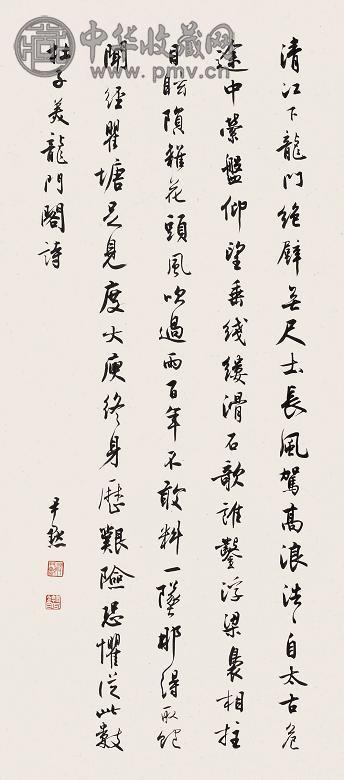 中华收藏网
www.pmv.cn
清江下龍門絕壁無尺土長風駕高浪浩〻自太古危
途中縈盤仰望垂綫縷滑石欹誰鑿浮梁裊相拄
目眩隕雜花頭風吹過雨百年不敢料一墜那得取飽
聞經瞿塘足見度大庾終身歷艱險恐懼從此數
杜子美龍門閣詩
尹默